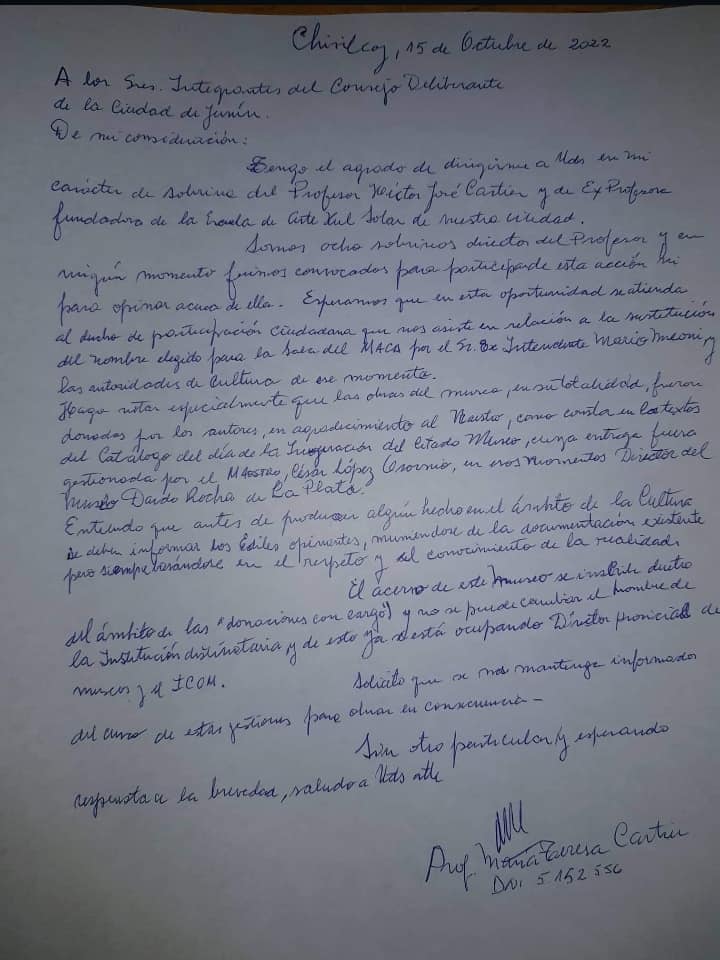 Chivilcoy, 15 de Octubre de 2022
A los Sres. Integrantes del Consejo Deliberante
de la Ciudad de Junín.
De mi consideración:
Tengo el agrado de dirigirme a Uds en mi
carácter de sobrina del Profesor Héctor José Cartier y de Ex Profesora
fundadora de la Escuela de Arte Xul Solar de nuestra ciudad.
Somos ocho sobrinos director del Profesor y en
ningún momento fuimos convocados para participar de esta acción ni
para opinar acerca de ella. Esperamos que en esta oportunidad se atienda
al derecho de participación ciudadana que nos asiste en relación a la sustitución
del nombre elegido para la Sala del MACA por el Sr. Ex Intendente Mario Meoni, y
las autoridades de Cultura de ese momento.
Hago notar especialmente que las obras del museo, en su totalidad, fueron
donadas por los autores, en agradecimiento al Maestro, como consta en los textos
del Catálogo del día de la Inauguración del citado Museo, cuya entrega fuera
gestionada por el MAESTRO, César López Osornio, en esos momentos Director del
Museo Dardo Rocha de La Plata.
Entiendo que antes de producir algún hecho en el ámbito de la Cultura
se deben informar los Ediles opinantes, muniendose de la documentación existente
pero siempre basándose en el respeto y el conocimiento de la realidad.
El acervo de este museo se inscribe dentro
del ámbito de las "donaciones con cargo" y no se puede cambiar el nombre de
la Institución destinataria, y de esto ya se está ocupando Director provincial de
museos y el ICOM.
Solicito que se nos mantenga informados
del curso de estas gestiones para obrar en consecuencia -
Sin otro particular y esperando
respuesta a la brevedad, saludo a Uds atte
Prof. María Teresa Cartier
DNI 5152556